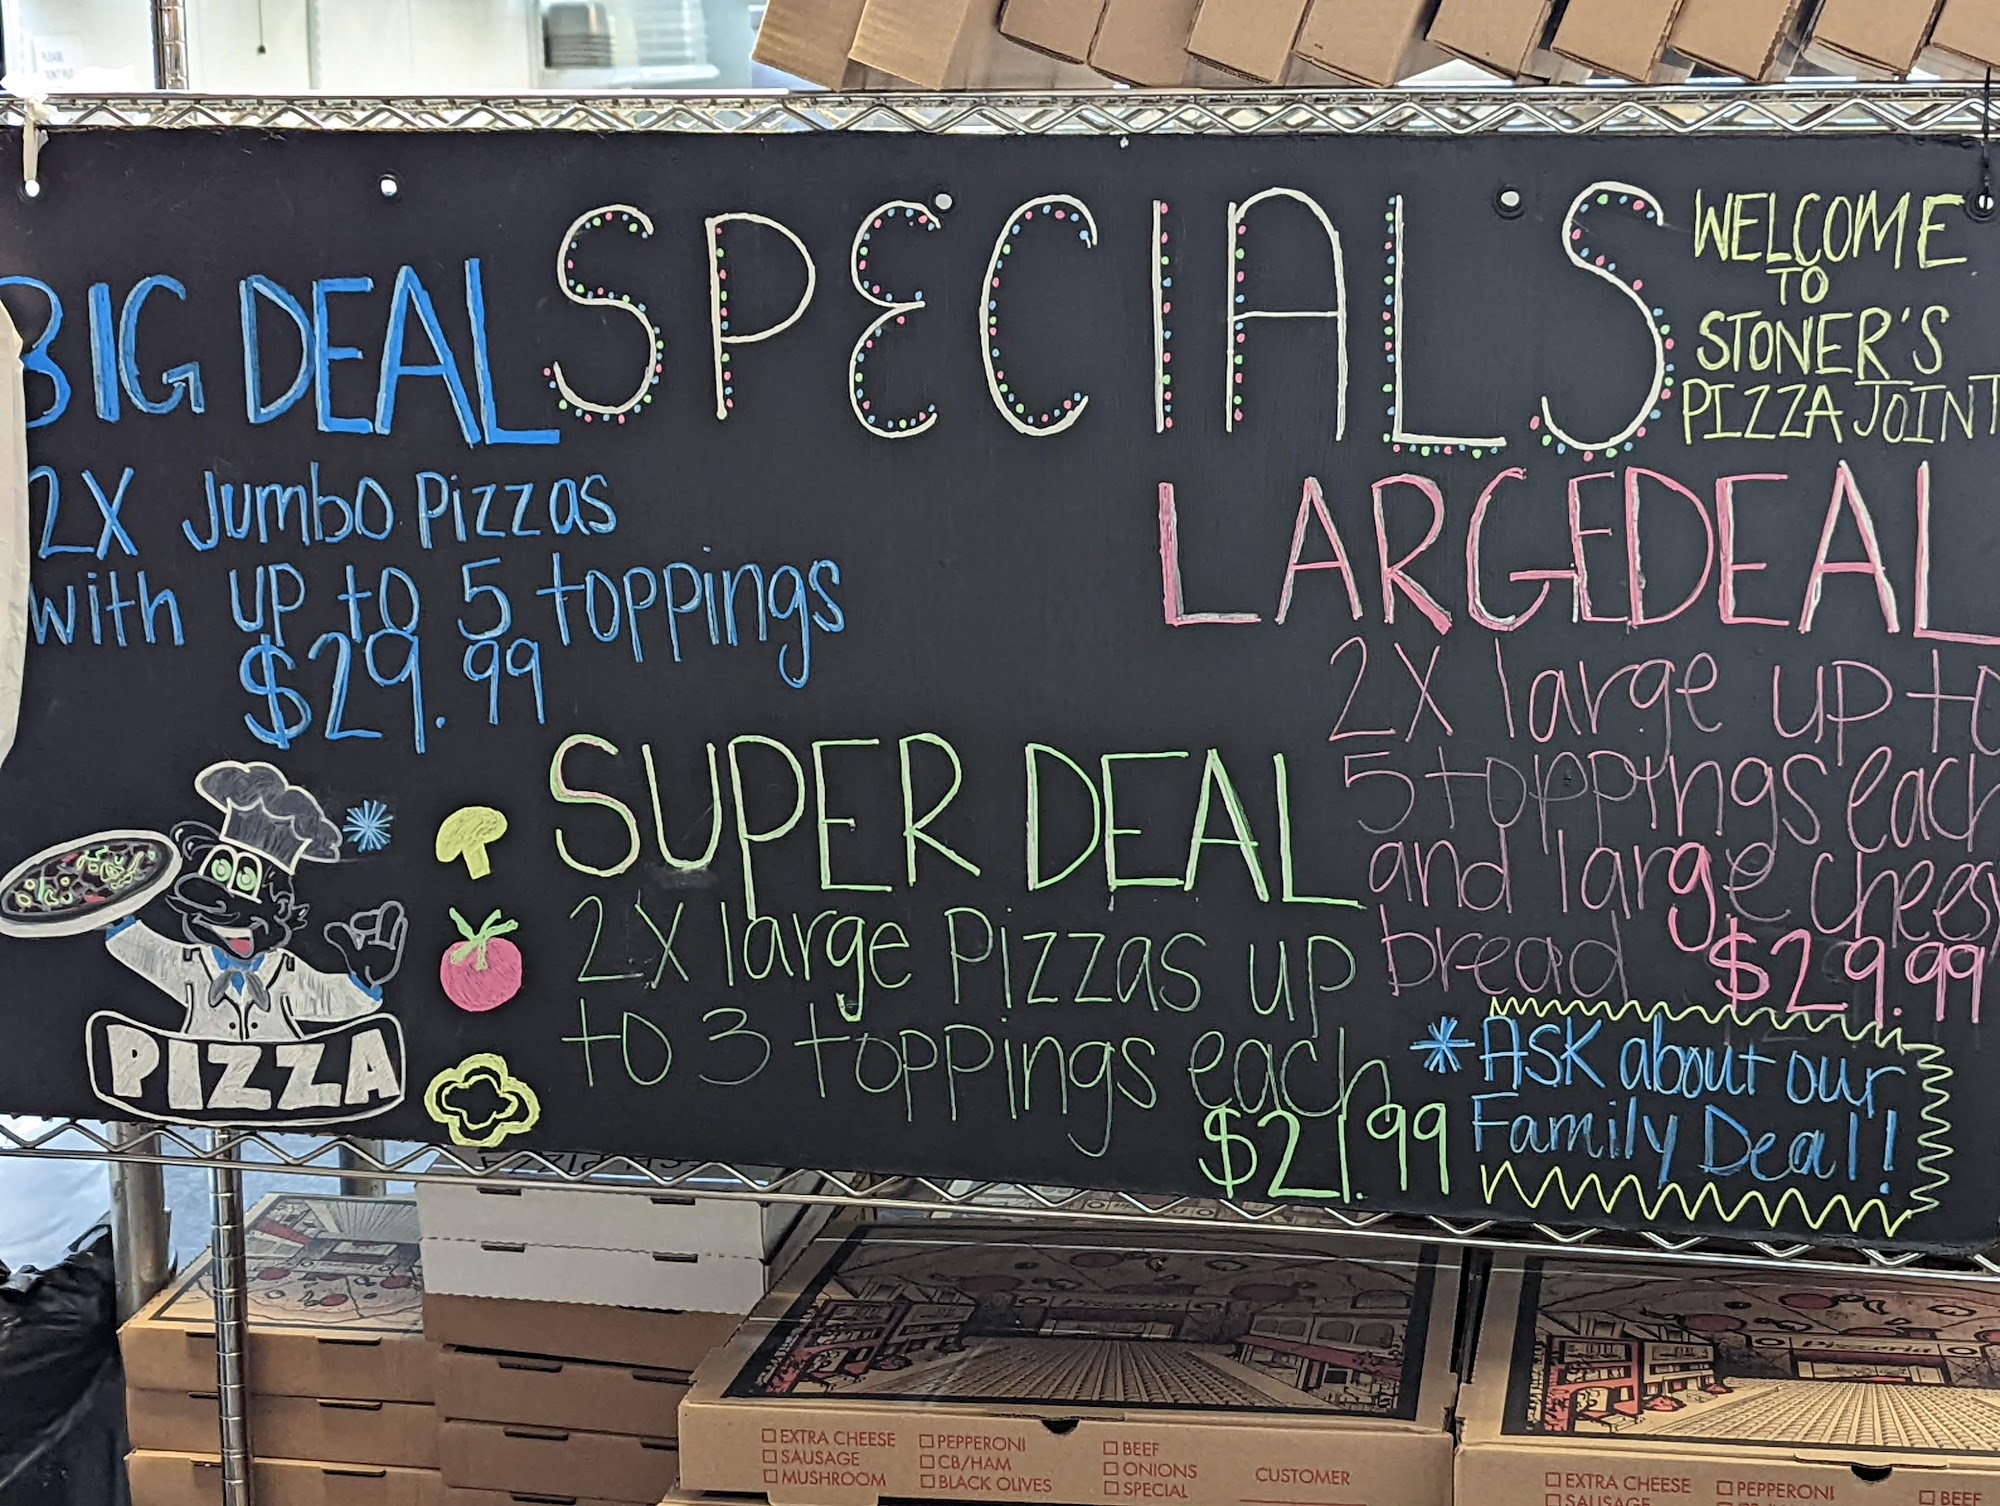 SPECIALS
WELCOME
TO
STONER'S
PIZZA JOINT
BIG DEAL
2X Jumbo Pizzas
with up to 5 toppings
$29.99
LARGE DEAL
2X large up to
5 toppings each
and large cheesy
bread $29.99
SUPER DEAL
2X large Pizzas up
to 3 toppings each
$21.99
*ASK about our
Family Deal!
PIZZA
Pizzeria
Pizzeria
EXTRA CHEESE PEPPERONI BEEF
SAUSAGE CB/HAM ONIONS CUSTOMER
MUSHROOM BLACK OLIVES SPECIAL
EXTRA CHEESE PEPPERONI BEEF
SAUSAGE